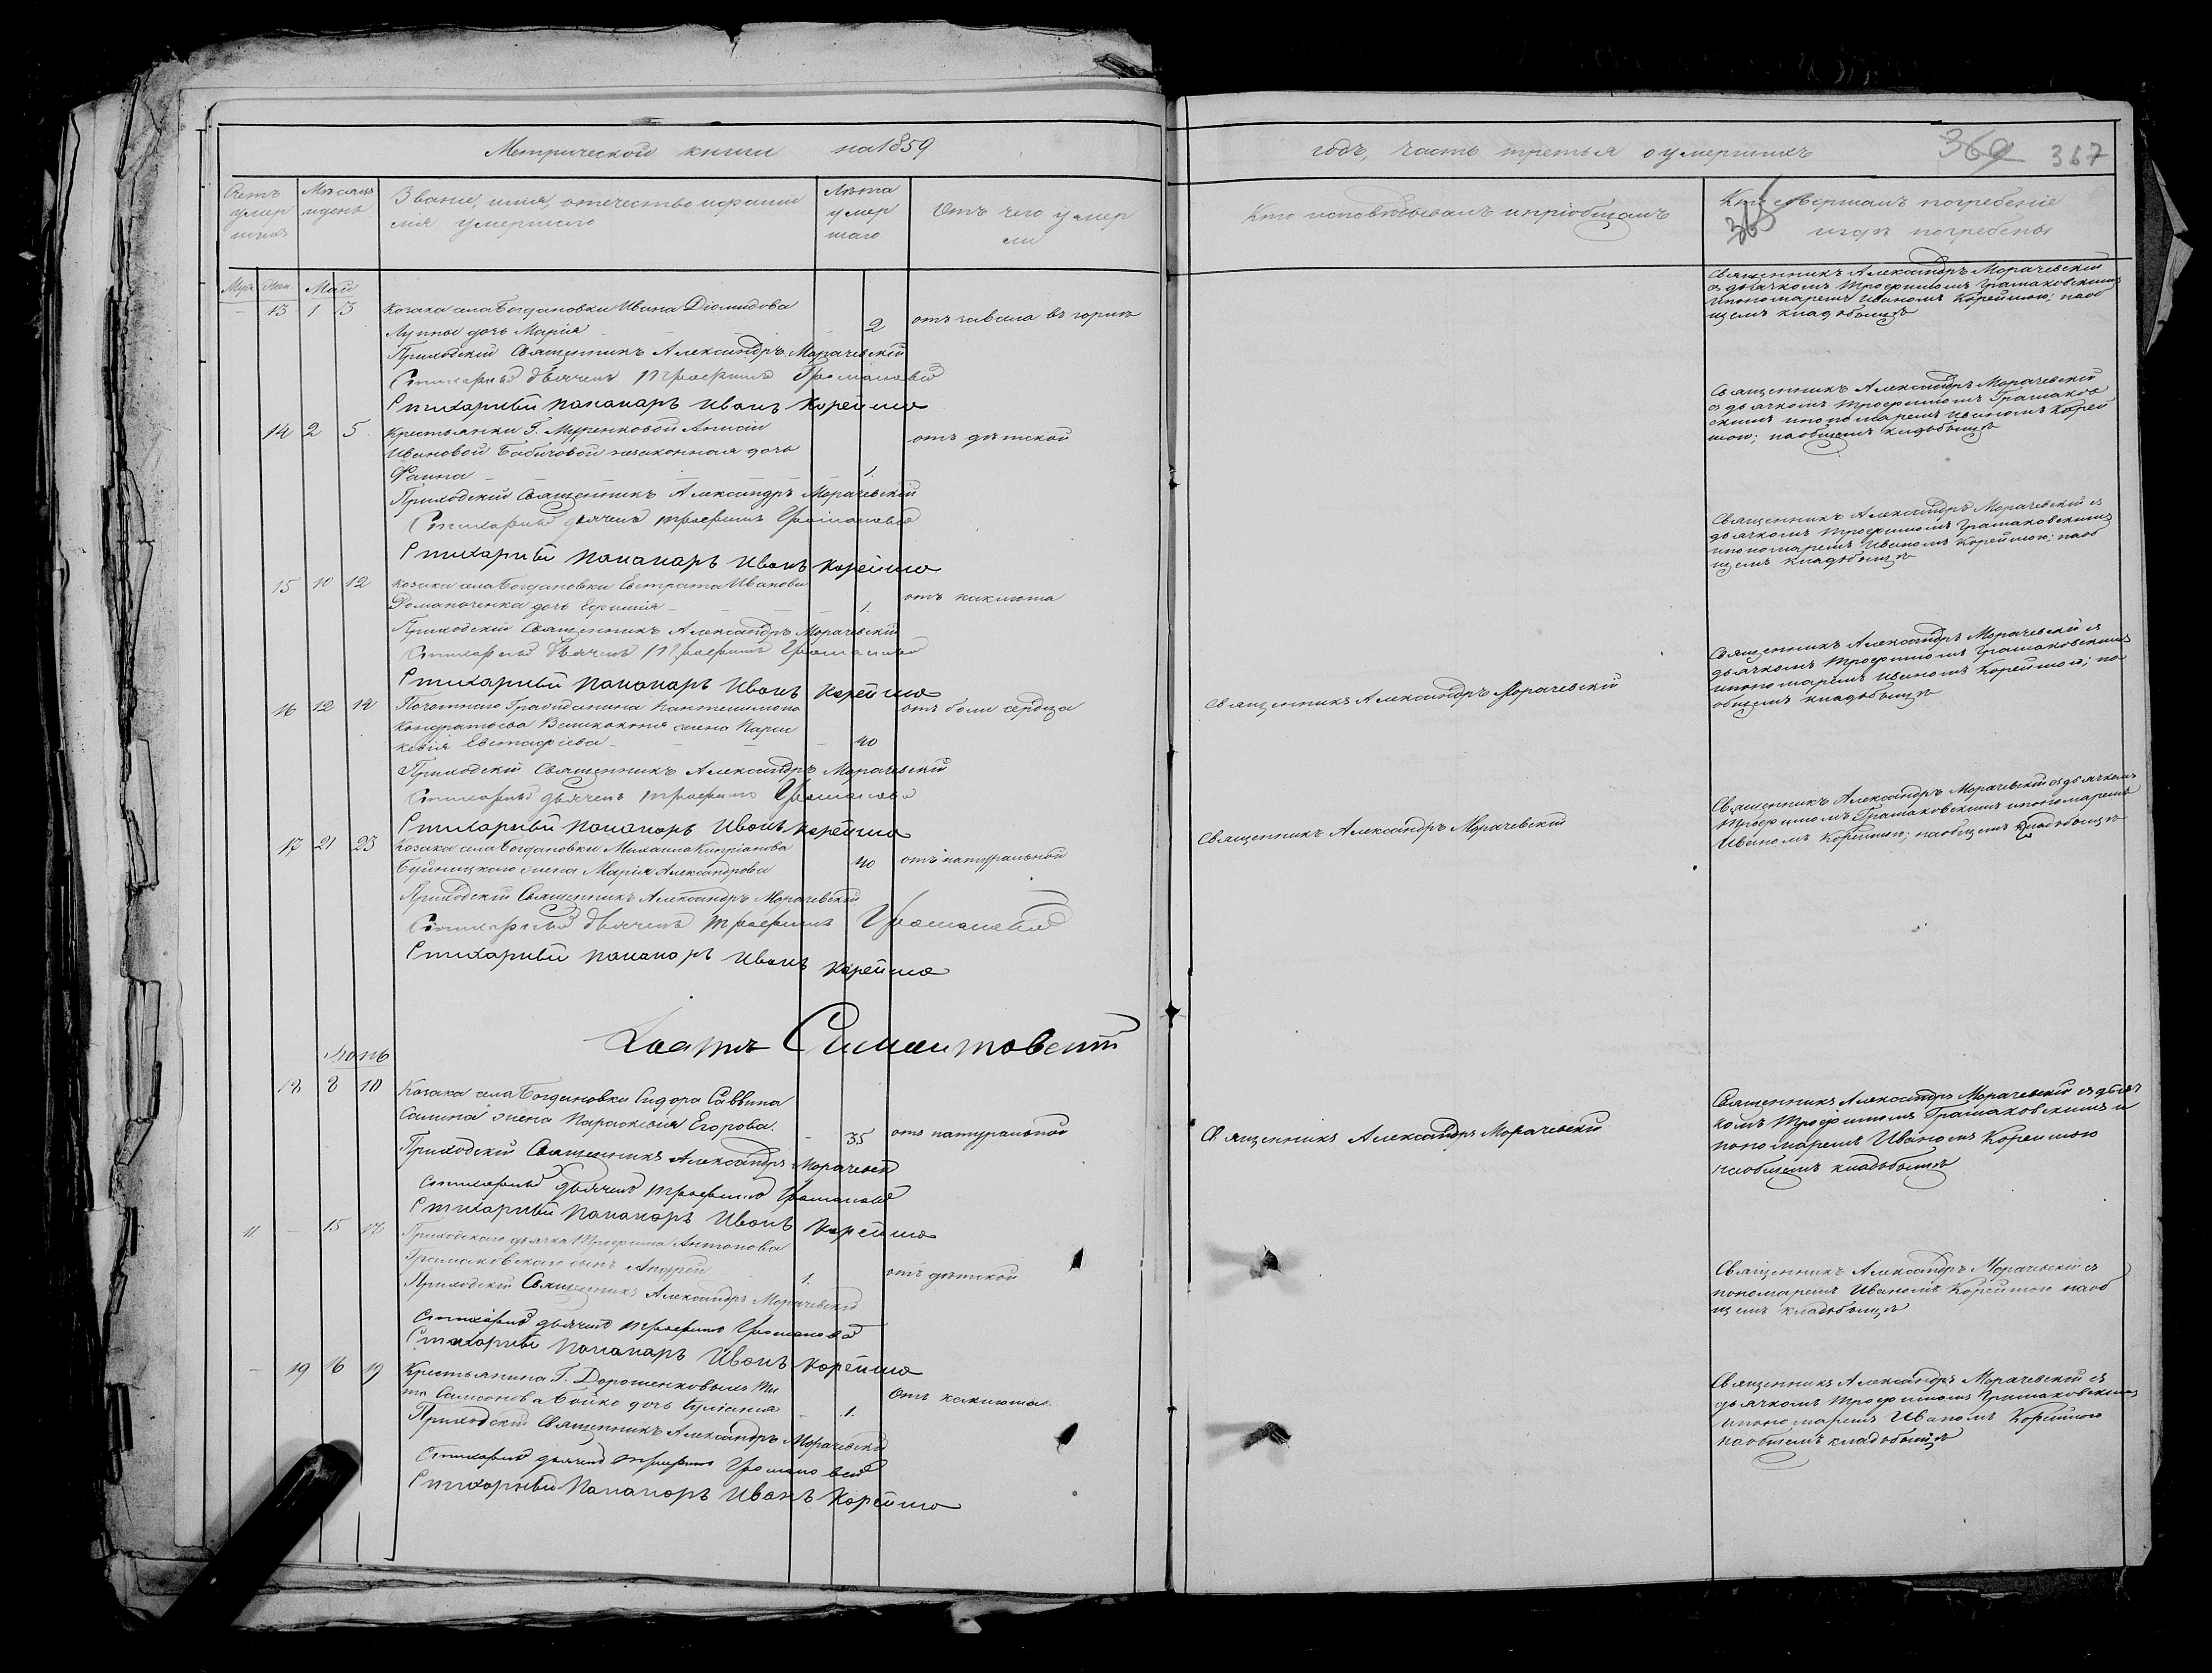 Метрической книги на 1859
годъ, часть третья о умершихъ
369 367
Счетъ умершихъ
Мѣсяцъ и день
Званіе, имя, отчество и фамилія умершаго
Лѣта умершаго
Отъ чего умерли
Кто исповѣдывалъ и пріобщалъ
Кто совершалъ погребеніе и гдѣ погребены
365
Муж. Жен. Май
— 13 1 3
Козака села Богдановки Ивана Діомидова
дочь Марія 2
отъ завала въ горлѣ
Приходскій Священникъ Александръ Морачевскій
Стихарный дьячекъ Трофимъ Грамаковскій
Стихарный понамаръ Иванъ Корейша
Священникъ Александръ Морачевскій
съ дьячкомъ Трофимомъ Грамаковскимъ
и пономаремъ Иваномъ Корейшою; на об
щемъ кладбищѣ
14 2 5
Крестьянки Г. Анисіи
Ивановой Бабичовой незаконная дочь
Фаина 1.
отъ дѣтской
Приходскій Священникъ Александръ Морачевскій
Стихарный дьячекъ Трофимъ Грамаковскій
Стихарный понамаръ Иванъ Корейша
Священникъ Александръ Морачевскій
съ дьячкомъ Трофимомъ Грамаков
скимъ и пономаремъ Иваномъ Корей
шою; на общемъ кладбищѣ
15 10 12
Козака села Богдановки Евстрата Иванова
Романоченка дочь Ефимія 1.
отъ коклюша
Приходскій Священникъ Александръ Морачевскій
Стихарный дьячекъ Трофимъ Грамаковскій
Стихарный понамаръ Иванъ Корейша
Священникъ Александръ Морачевскій съ
дьячкомъ Трофимомъ Грамаковскимъ
и пономаремъ Иваномъ Корейшою; на об
щемъ кладбищѣ
16 12 14
Почетнаго Гражданина Пантелимона
Кондратьева жена Парас
кевія Евстафіева 40
отъ боли сердца
Приходскій Священникъ Александръ Морачевскій
Стихарный дьячекъ Трофимъ Грамаковскій
Стихарный понамаръ Иванъ Корейша
Священникъ Александръ Морачевскій
Священникъ Александръ Морачевскій съ
дьячкомъ Трофимомъ Грамаковскимъ
и пономаремъ Иваномъ Корейшою; на
общемъ кладбищѣ
17 21 23
Козака села Богдановки Михаила Кипріанова
Буйницкого жена Марія Александрова 40
отъ натуральной
Приходскій Священникъ Александръ Морачевскій
Стихарный дьячекъ Трофимъ Грамаковскій
Стихарный понамаръ Иванъ Корейша
Священникъ Александръ Морачевскій
Священникъ Александръ Морачевскій съ дьячкомъ
Трофимомъ Грамаковскимъ и пономаремъ
Иваномъ Корейшою; на общемъ кладбищѣ
Іюнь
18 8 10
Козака села Богдановки Сидора Саввина
жена Параскевія Егорова. 35
отъ натуральной
Приходскій Священникъ Александръ Морачевскій
Стихарный дьячекъ Трофимъ Грамаковскій
Стихарный понамаръ Иванъ Корейша
Священникъ Александръ Морачевскій
Священникъ Александръ Морачевскій съ дьяч
комъ Трофимомъ Грамаковскимъ и
пономаремъ Иваномъ Корейшою
на общемъ кладбищѣ
11 — 15 17
Приходскаго дьячка Трофима Антонова
Грамаковскаго сынъ Андрей 1.
отъ дѣтской
Приходскій Священникъ Александръ Морачевскій
Стихарный дьячекъ Трофимъ Грамаковскій
Стихарный понамаръ Иванъ Корейша
Священникъ Александръ Морачевскій съ
пономаремъ Иваномъ Корейшою на об
щемъ кладбищѣ
— 19 16 19
Крестьянина Г. Дорошенковыхъ Ти
та Самсонова Бойко дочь 1.
отъ коклюша
Приходскій Священникъ Александръ Морачевскій
Стихарный дьячекъ Трофимъ Грамаковскій
Стихарный понамаръ Иванъ Корейша
Священникъ Александръ Морачевскій съ
дьячкомъ Трофимомъ Грамаковскимъ
и пономаремъ Иваномъ Корейшою
на общемъ кладбищѣ